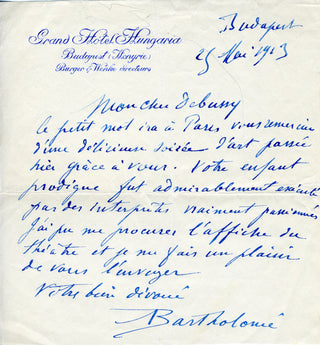 Grand Hôtel Hungaria
Budapest (Hongrie)
Burger & Wenke directeurs
Budapest
25 Mai 1913
Mon cher Debussy
Ce petit mot ira à Paris vous remercier
d'une délicieuse soirée d'art passée
hier grâce à vous. Votre enfant
prodigue fut admirablement exécuté
par des interprètes vraiment passionnés
J'ai pu me procurer l'affiche du
théâtre et je me fais un plaisir
de vous l'envoyer
Votre bien dévoué
Bartholomé